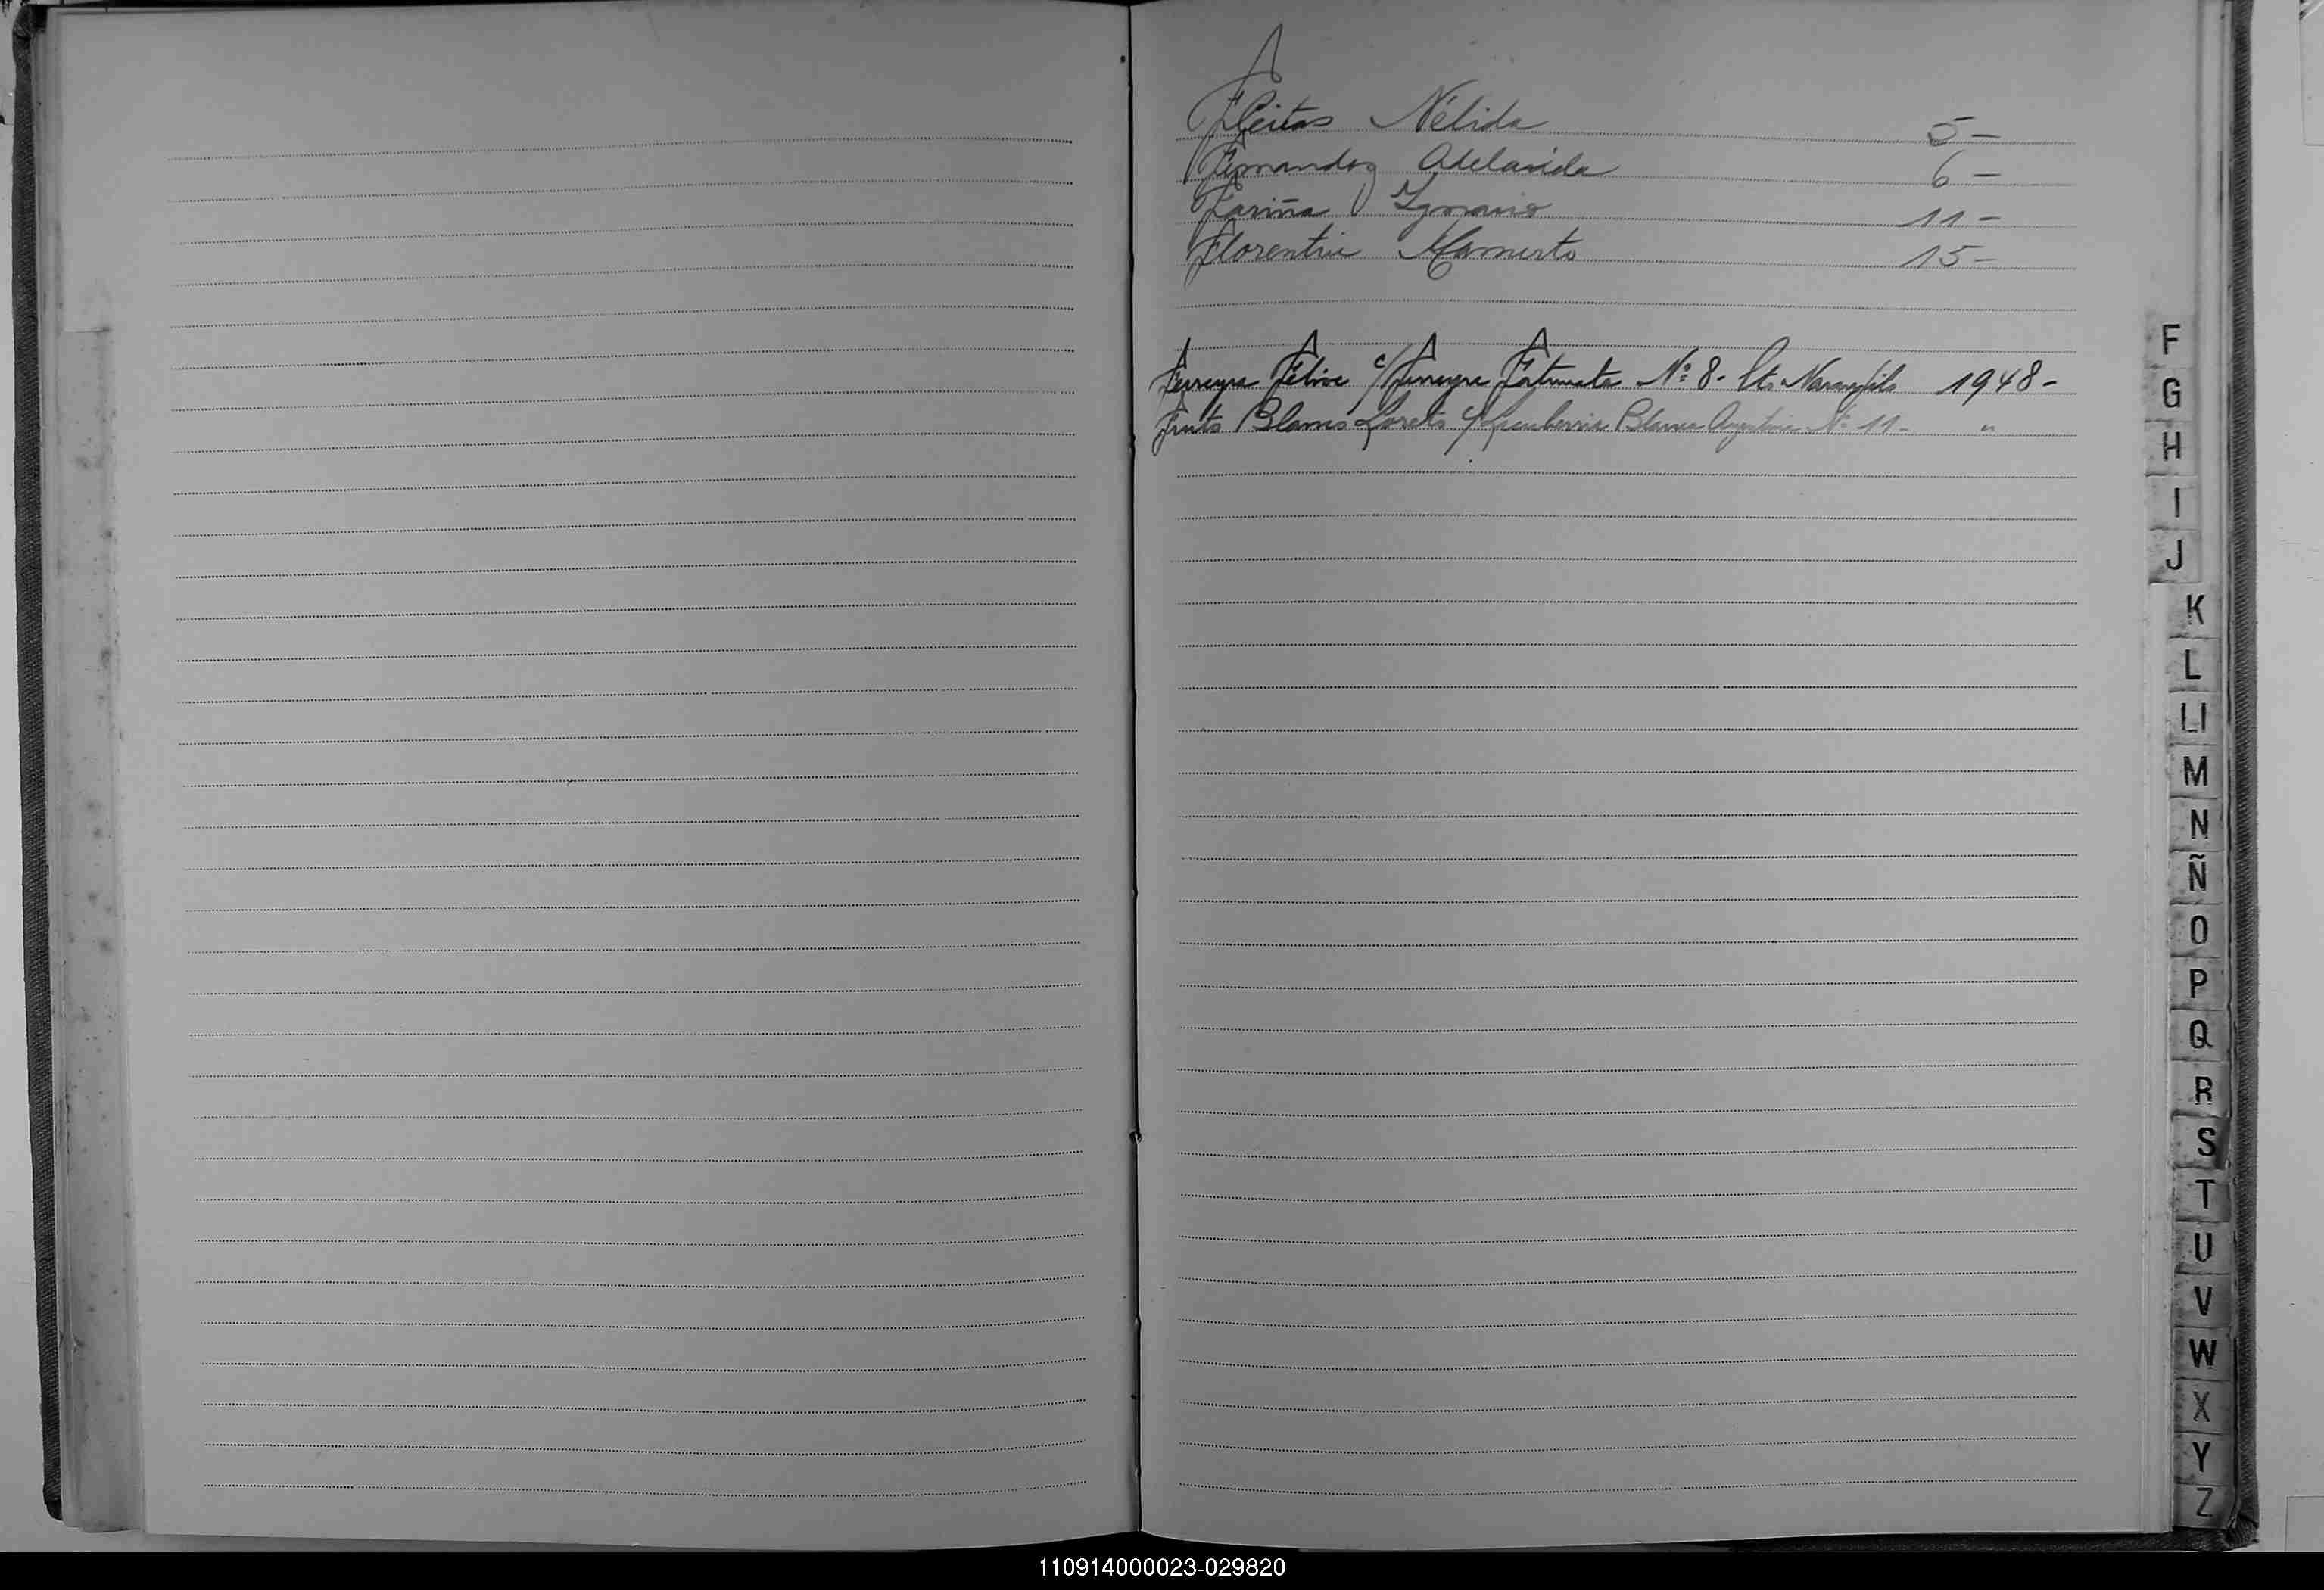 Fleitas Nélida 5-
Fernandez Adelaida 6-
Fariña Ignacio 11-
Florentin Mamerto 15-
Ferreyra c/ Ferreyra Fortunata Nº 8- Naranjito 1948-
Blanco Loreto c/ Blanca Argentina Nº 11- "
F
G
H
I
J
K
L
Ll
M
N
Ñ
O
P
Q
R
S
T
U
V
W
X
Y
Z
110914000023-029820